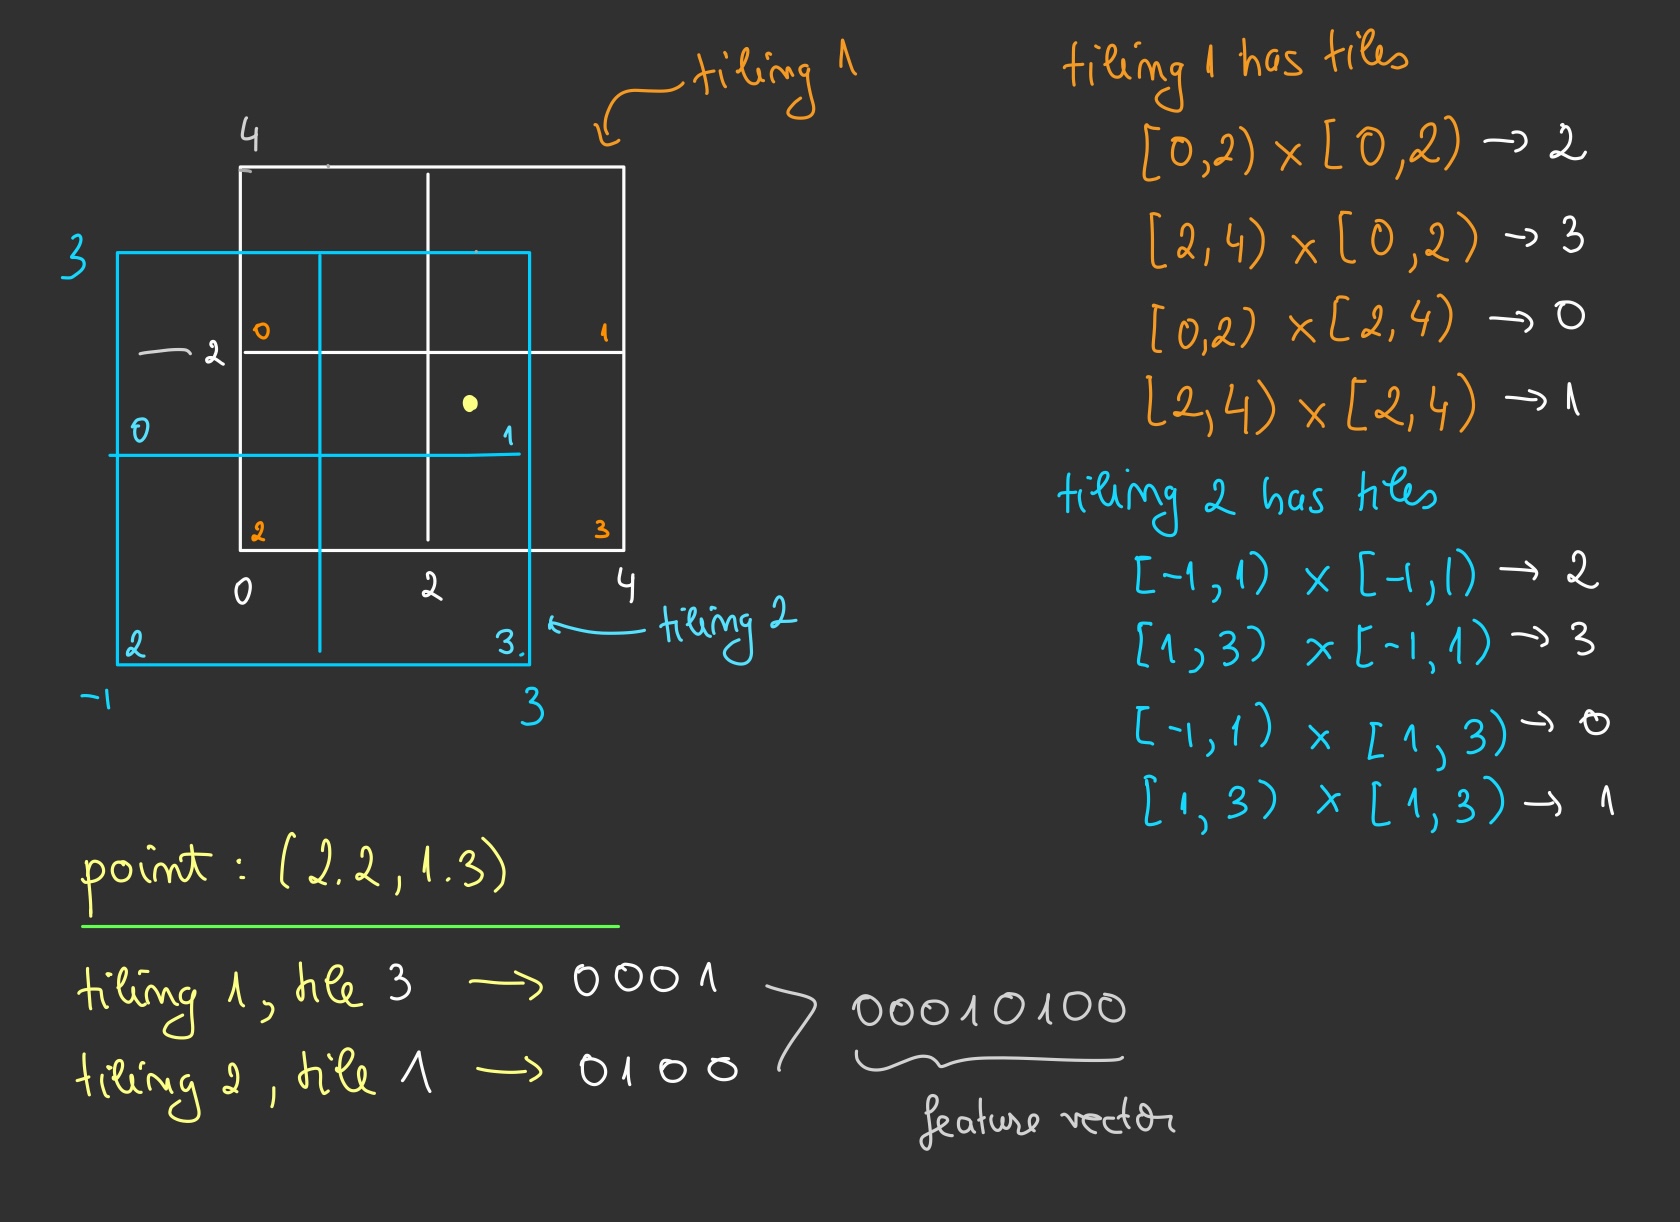 tiling 1
4
3
0
1
2
0
1
2
3
0
2
4
tiling 2
2
3.
-1
3
tiling 1 has tiles
[0,2) x [0,2) → 2
[2,4) x [0,2) → 3
[0,2) x [2,4) → 0
[2,4) x [2,4) → 1
tiling 2 has tiles
[-1,1) x [-1,1) → 2
[1,3) x [-1,1) → 3
[-1,1) x [1,3) → 0
[1,3) x [1,3) → 1
point: (2.2, 1.3)
tiling 1, tile 3 → 0001
tiling 2, tile 1 → 0100
00010100
feature vector